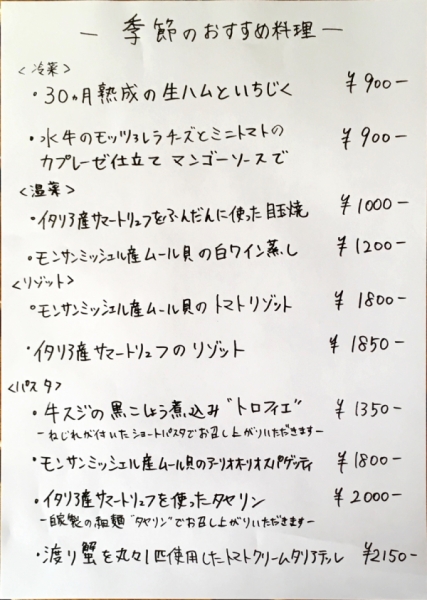 ― 季節のおすすめ料理 ―
<冷菜>
・30ヵ月熟成の生ハムといちじく ¥900-
・水牛のモッツァレラチーズとミニトマトの ¥900-
カプレーゼ仕立て マンゴーソースで
<温菜>
・イタリア産サマートリュフをふんだんに使った目玉焼 ¥1000-
・モンサンミッシェル産ムール貝の白ワイン蒸し ¥1200-
<リゾット>
・モンサンミッシェル産ムール貝のトマトリゾット ¥1800-
・イタリア産サマートリュフのリゾット ¥1850-
<パスタ>
・牛スジの黒こしょう煮込み"トロフィエ" ¥1350-
-ねじれが付いたショートパスタでお召し上がりいただきます-
・モンサンミッシェル産ムール貝のアーリオオーリオスパゲッティ ¥1800-
・イタリア産サマートリュフを使ったタヤリン ¥2000-
-自家製の細麺"タヤリン"でお召し上がりいただきます-
・渡り蟹を丸々1匹使用したトマトクリームタリアテッレ ¥2150-